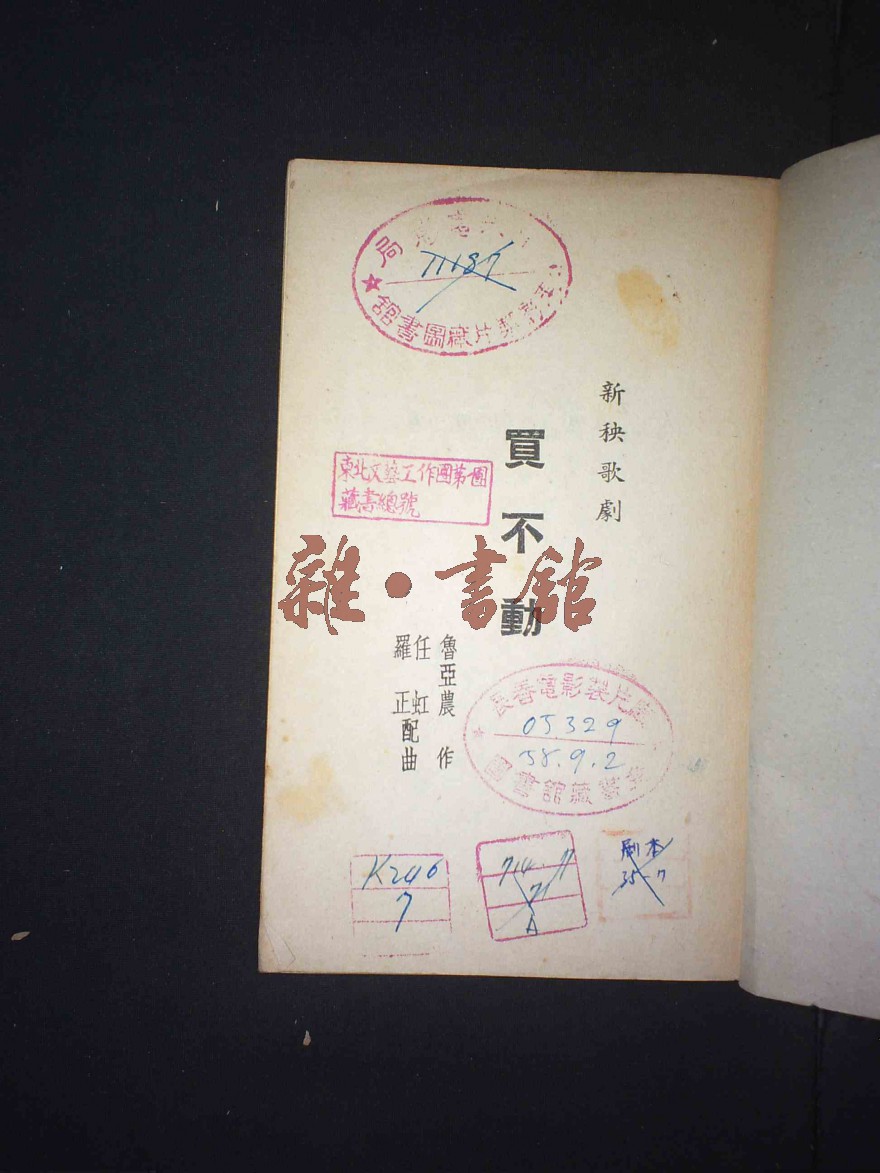 新秧歌劇
買不動
魯亞農 作
任虹
羅正 配曲
東北文藝工作團第一團
藏書總號
雜·書館
局
71187
片廠圖書館
長春電影製片廠
05329
58.9.2
圖書館藏書
K246
7
714.77
71
A
劇本
35-7